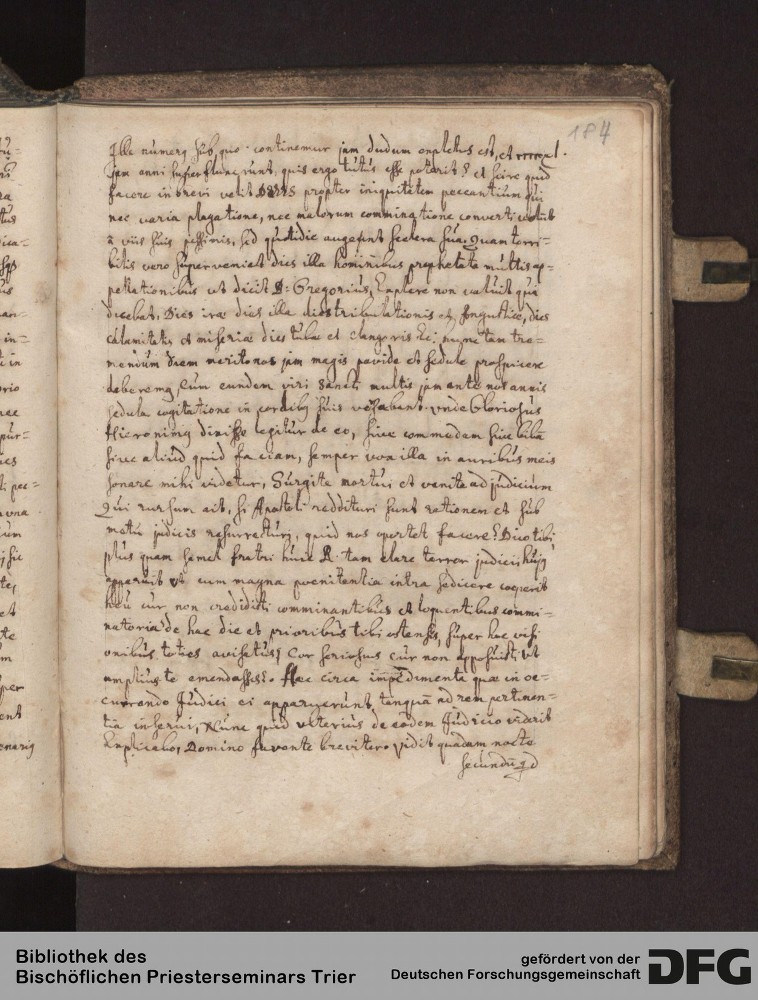 184
Ille numerq sub quo continemur jam dudum expletus est, et
jam anni superfluxerunt, quis ergo tutus esse poterit? et scire quid
facere in brevi velit DEUS propter iniquitatem peccantium qui
nec varia plagatione, nec malorum comminatione converti volunt
à viis suis pessimis, sed quotidie augent scelera sua. Quam terri-
bilis vero superveniet dies illa hominibus prophetate multis ap-
pellationibus ut dicit B: Gregorius, Explere non valuit qua
dicebat, Dies irae dies illa dies tribulationis et Angustiae, dies
calamitatis et miseriae dies tubae et clangoris &c; nunc tan tre-
mendum diem merito nos jam magis pavide et sedule prospicere
deberemq, cum eundem viri sancti multis jam ante nos annis
sedula cogitatione in cordibq suis versabant. unde Gloriosus
Hieronimq dixisse legitur de eo, sive commedam sive bibā
sive aliud quid faciam, semper vox illa in auribus meis
sonare mihi videtur, Surgite mortui et venite ad judicium
Qui rursum ait, si Apostoli reddituri sunt rationem et sub
metu judicis resurrecturi, quid nos oportet facere? Dico tibi
plus quam semel fratri huic R. tam clare terror judicii hujq
apparuit ut cum magna poenitentia intra se dicere coeperit
heu cur non credidisti comminantibus et loquentibus commi-
natoria de hac die et prioribus tibi ostensis, super hac visi
onibus toties avisatus? Cor seriosius cur non apposuisti ut
amplius te emendasses? Haec circa impedimenta quae in oc-
currendo Judici ei apparuerunt, tanquā ad rem pertinen-
tia inserui, Nunc quid ulterius de eodem Judicio viderit
Explicabo, Domino favente breviter. vidit quadam nocte
secundū qd
Bibliothek des
Bischöflichen Priesterseminars Trier
gefördert von der
Deutschen Forschungsgemeinschaft
DFG